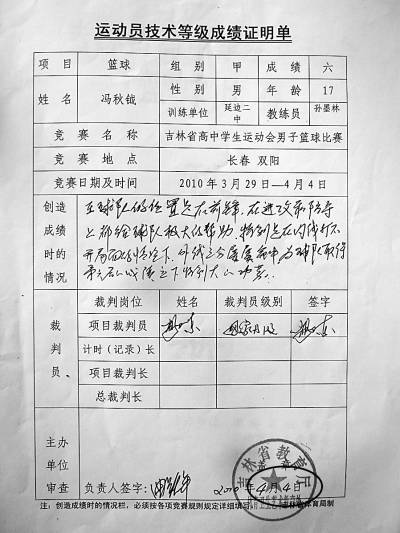 运动员技术等级成绩证明单
项目 篮球 组别 甲 成绩 六
姓名 冯秋钺 性别 男 年龄 17
训练单位 延边二中 教练员 孙墨林
竞赛名称 吉林省高中学生运动会男子篮球比赛
竞赛地点 长春 双阳
竞赛日期及时间 2010年3月29—4月4日
创造成绩时的情况
在球队的位置是在前锋,在进攻和防守
上都给球队极大的帮助,特别是在内线打不
开局面的情况下,外线三分屡屡命中,为球队取得
裁判员
裁判岗位 姓名 裁判员级别 签字
项目裁判员 国家
计时(记录)长
项目裁判长
总裁判长
主办单位审查
负责人签字: 2010年4月4日
吉林省教育厅
注:创造成绩时的情况栏,必须按各项竞赛规则规定详细填写 吉林省体育局制